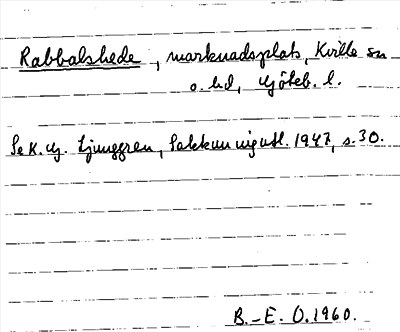 Rabbalshede, marknadsplats, Kville sn
o. hd, Göteb. l.
Se K. G. Ljunggren, 1947, s. 30.
B.-E. O. 1960.